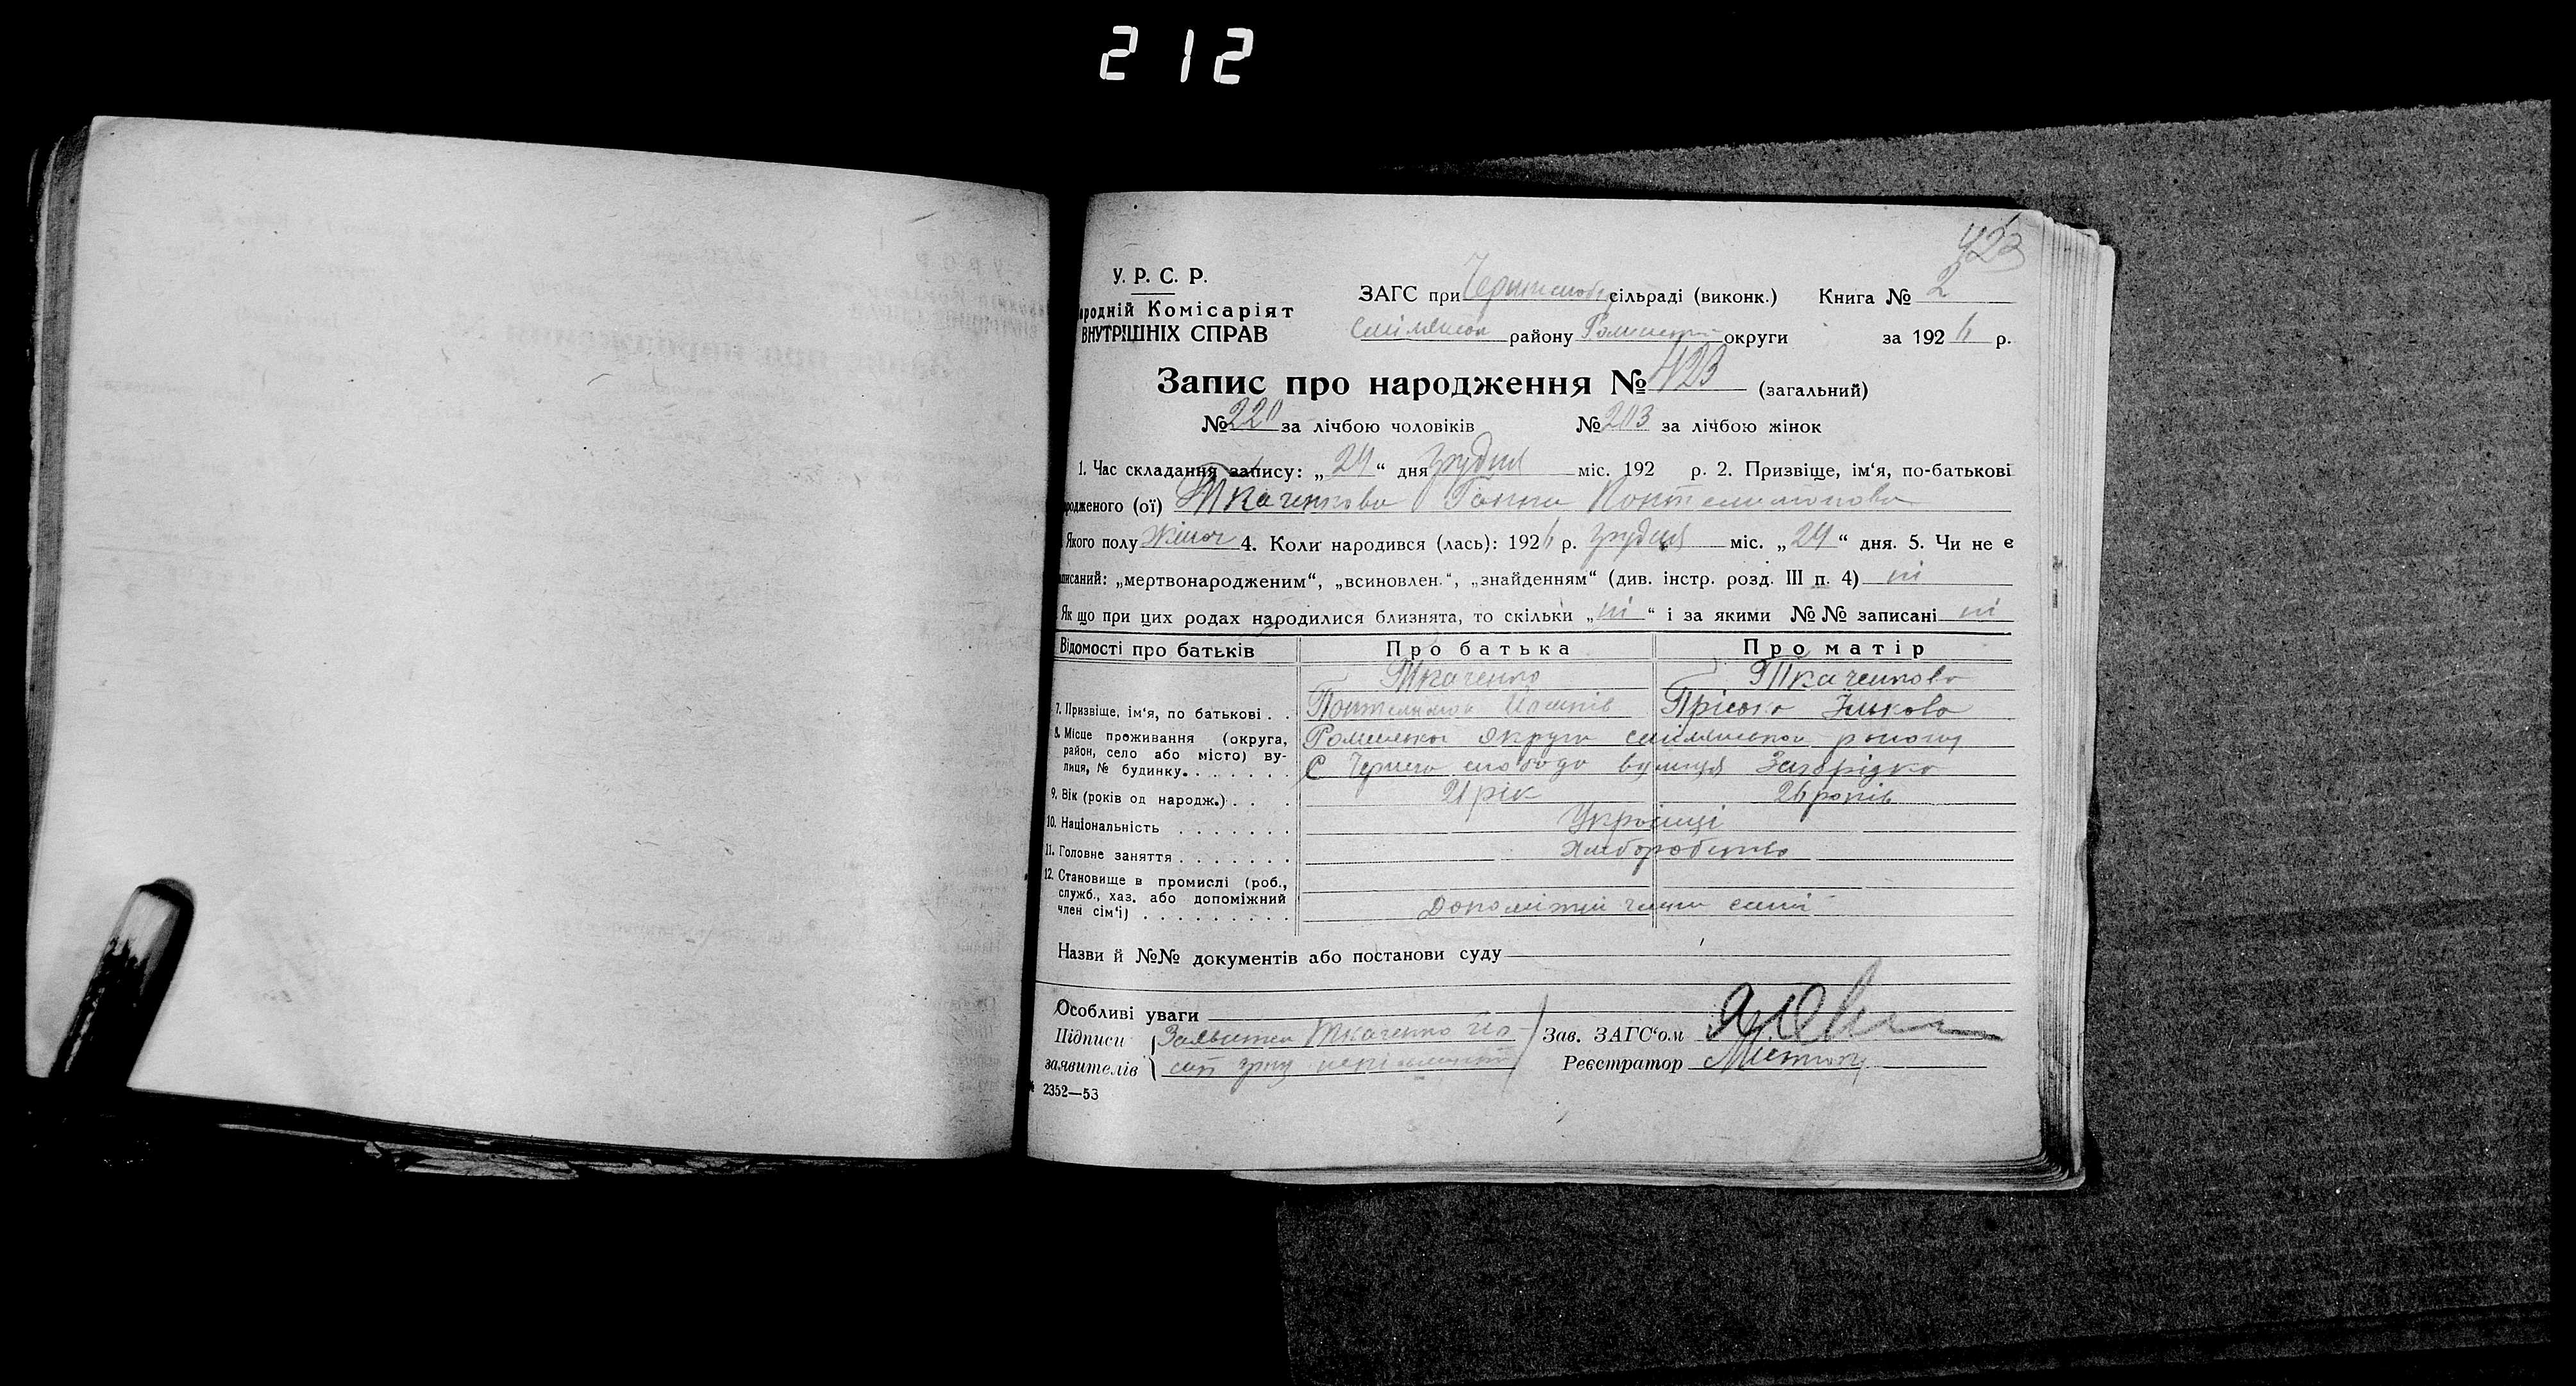 212
423
У. Р. С. Р.
ародній Комісаріят
ВНУТРІШНІХ СПРАВ
ЗАГС при сільраді (виконк.) Книга № 2
району округи за 1926 р.
Запис про народження № 423 (загальний)
№ 220 за лічбою чоловіків № 203 за лічбою жінок
1. Час складання запису: „24“ дня грудня міс. 192 р. 2. Призвіще, ім‘я, по-батькові
родженого (ої) Ткаченкова Ганна
Якого полу жіноч 4. Коли народився (лась): 1926 р. грудня міс. „24“ дня. 5. Чи не є
писаний: „мертвонародженим“, „всиновлен.“, „знайденням“ (див. інстр. розд. III п. 4) ні
Як що при цих родах народилися близнята, то скільки „ні“ і за якими №№ записані ні
Відомості про батьків Про батька Про матір
Ткаченко Ткаченкова
7. Призвіще, ім‘я, по батькові . . Пріська
8. Місце проживання (округа, Роменської округи району
район, село або місто) ву- С Чернича слобода вулиця Загорідка
лиця, № будинку. . . . . . .
9. Вік (років од народж.) . . . 21 рік 26 років
10. Національність . . . . . . . Українці
11. Головне заняття . . . . . . . Хліборобство
12. Становище в промислі (роб.,
служб., хаз. або допоміжний
член сім‘ї) . . . . . . . . . Допоміжні члени сімї
Назви й №№ документів або постанови суду
Особливі уваги
Підписи Ткаченко Зав. ЗАГС‘ом
заявителів Реєстратор
№ 2352—53